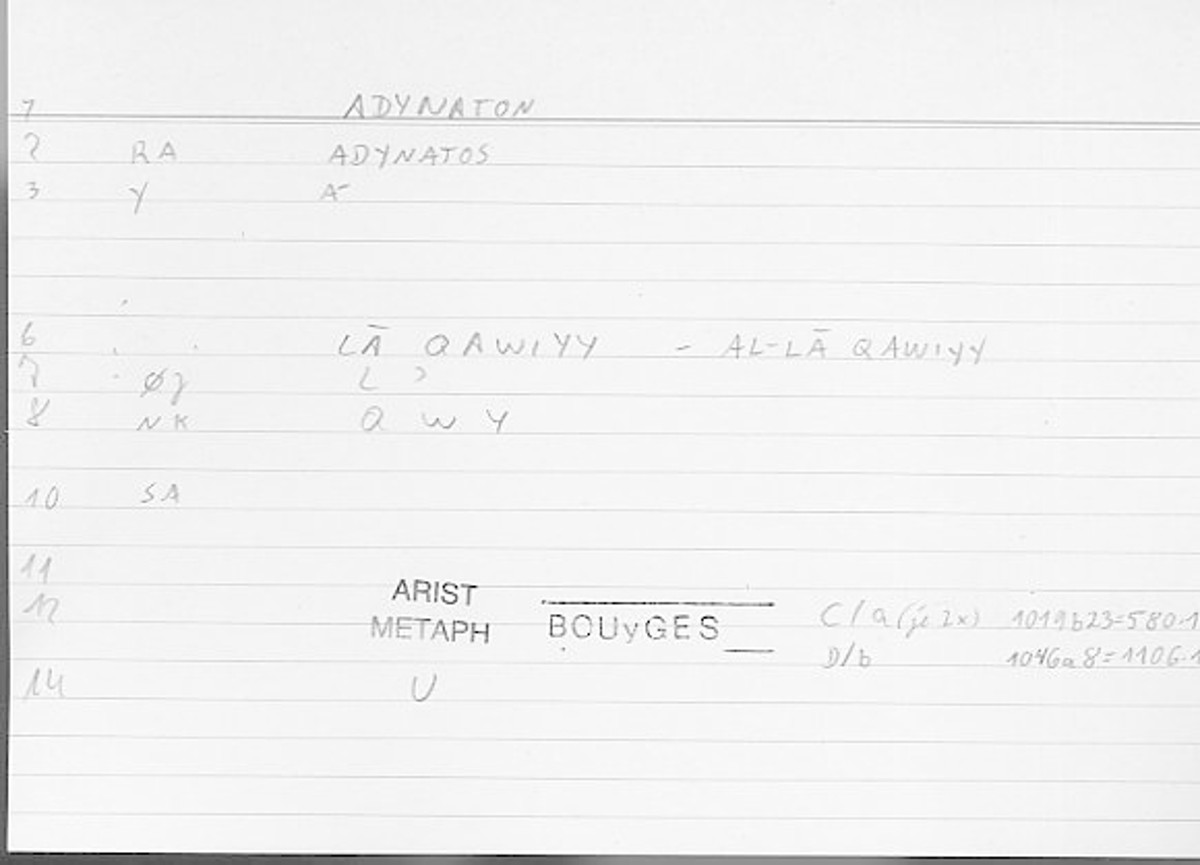 1 ADYNATON
2 RA ADYNATOS
3 Y A-
6 LĀ QAWIYY - AL-LĀ QAWIYY
7 L ʾ
8 NK Q W Y
10 SA
11 ARIST
12 METAPH BOUyGES C/a (je 2x) 1019b23=580.1
D/b 1046a8=1106.1
14 U